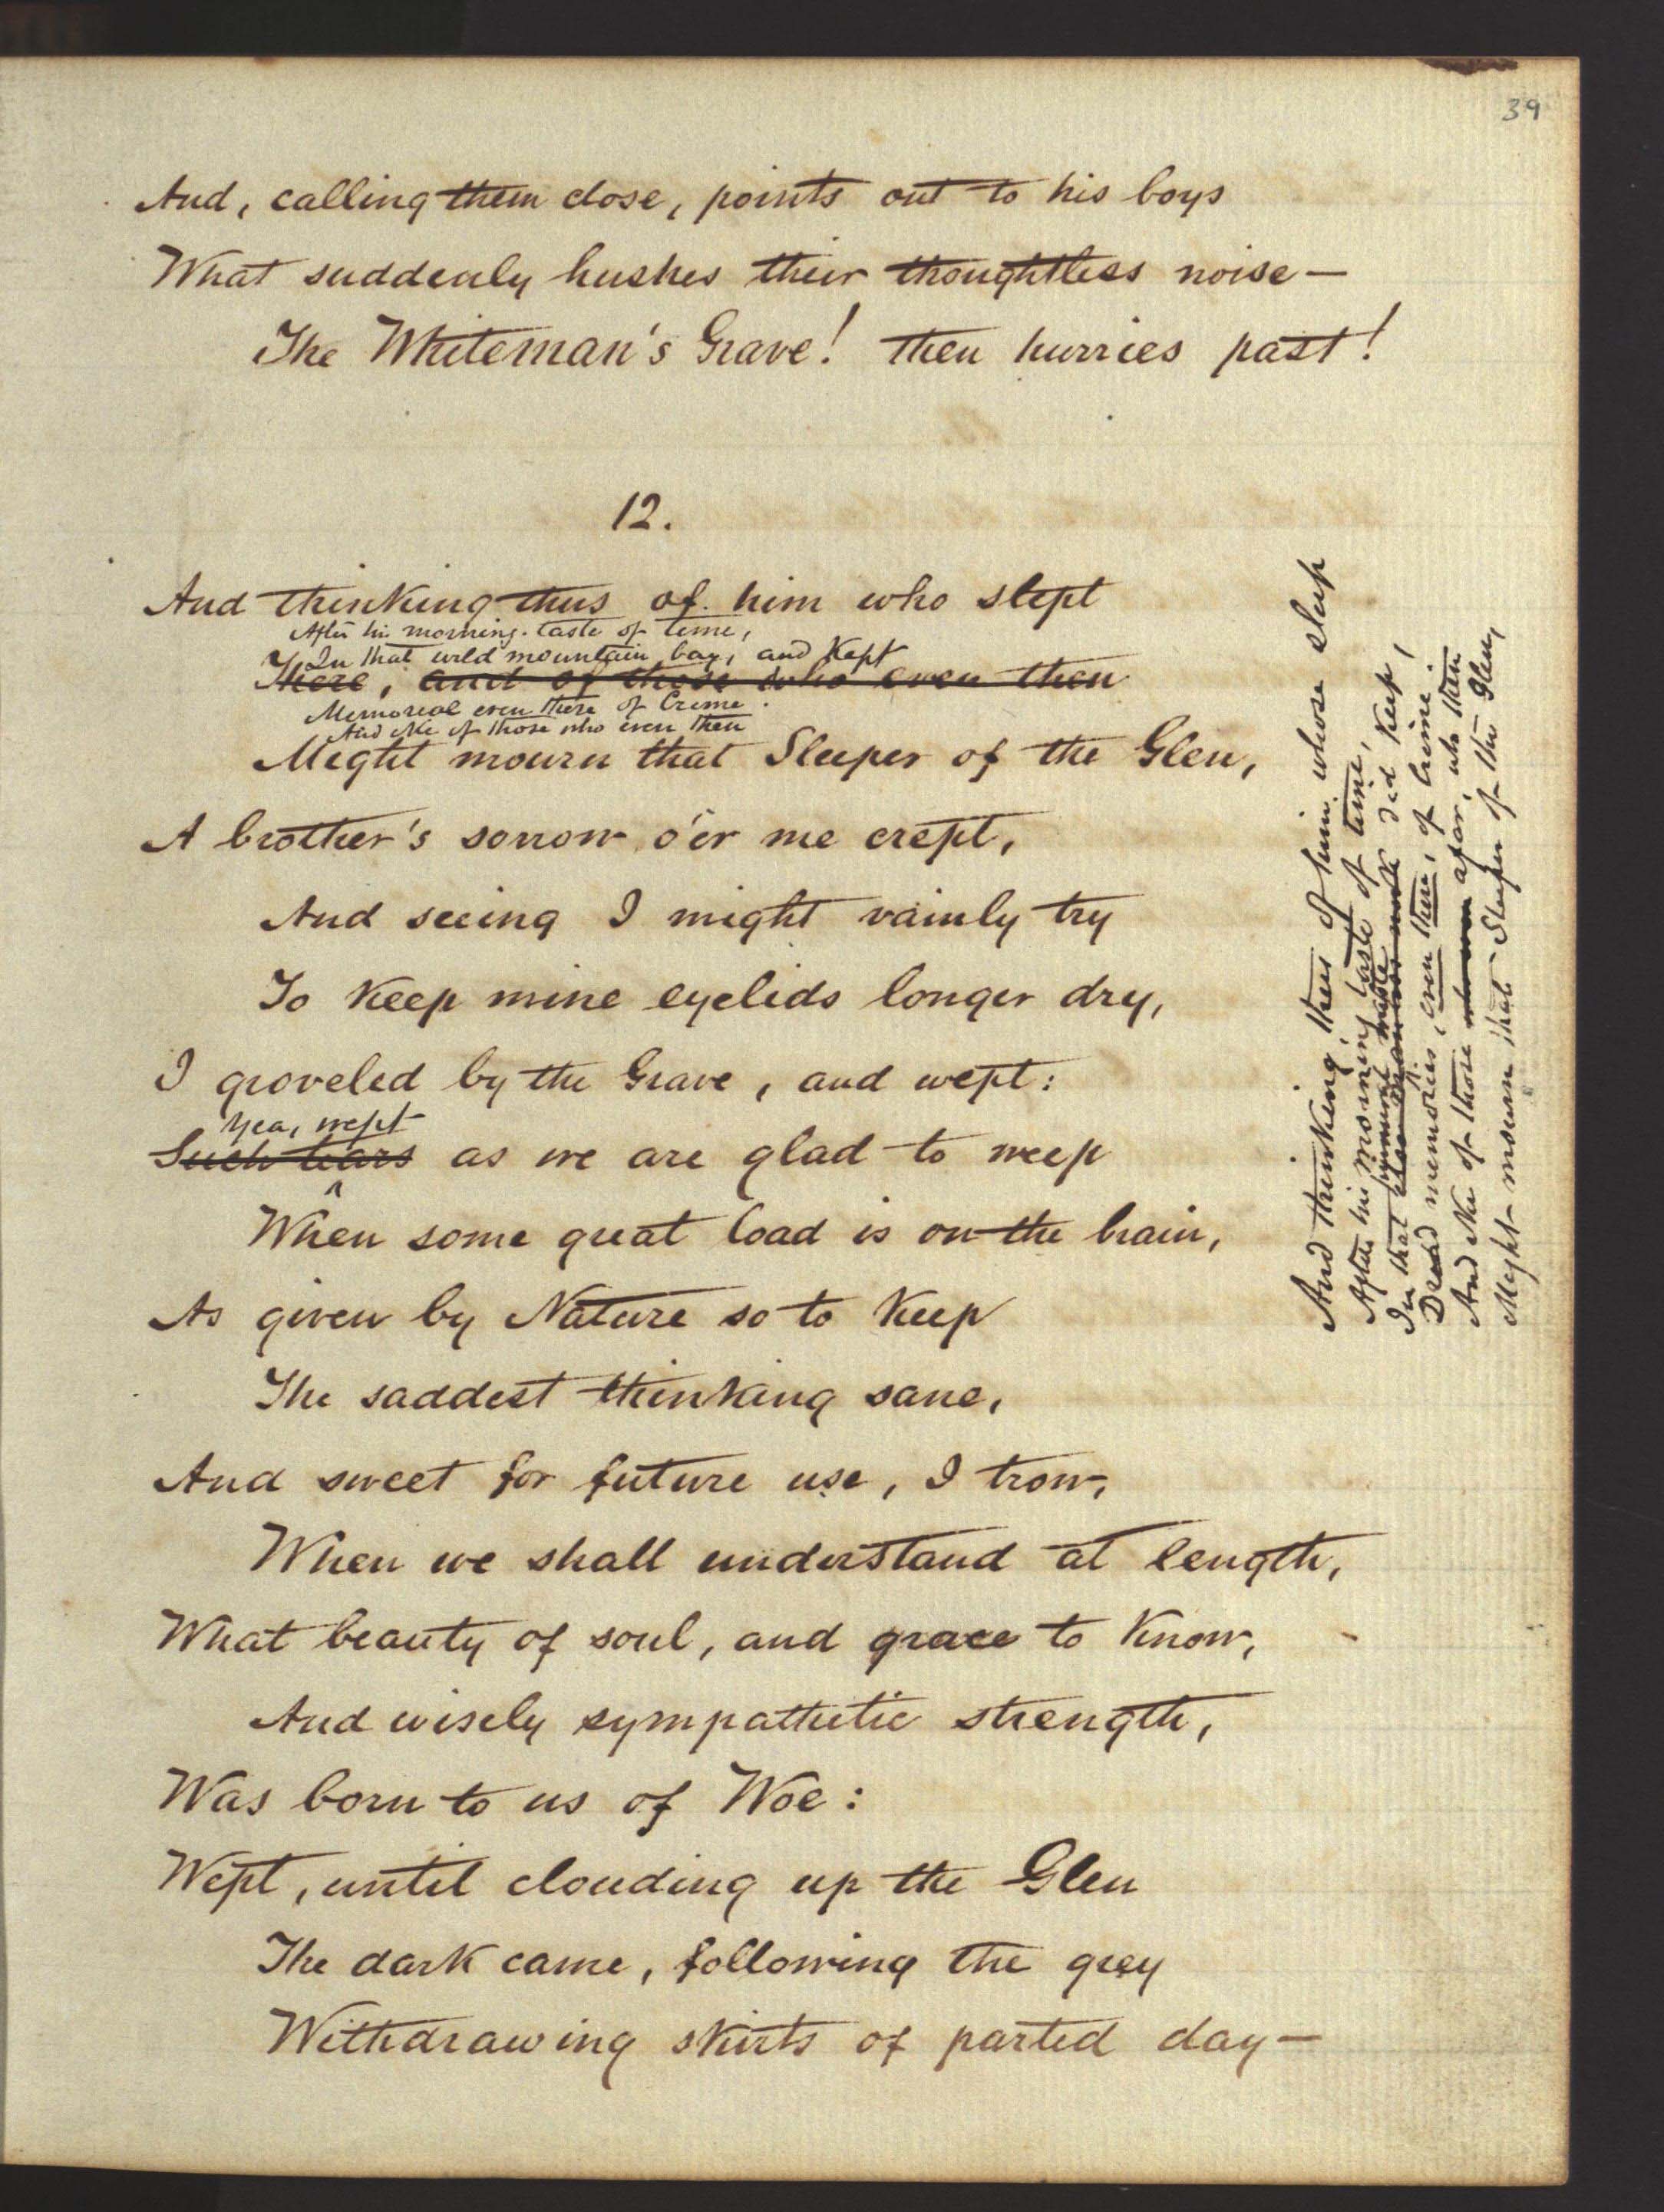 39
And, calling them close, points out to his boys
What suddenly hushes their thoughtless noise—
The Whiteman's Grave! then hurries past!
12.
And thinking thus of him who slept
After his morning taste of time,
In that wild mountain bay, and kept
There, and of those who even then
Memorial even there of Crime.
And eke of those who even then
Might mourn that Sleeper of the Glen,
A brother's sorrow o'er me crept,
And seeing I might vainly try
To keep mine eyelids longer dry,
I groveled by the Grave, and wept:
Yea, wept
Such tears as we are glad to weep
When some great load is on the brain,
As given by Nature so to keep
The saddest thinking sane,
And sweet for future use, I trow,
When we shall understand at length,
What beauty of soul, and grace to know,
And wisely sympathetic strength,
Was born to us of Woe:
Wept, until clouding up the Glen
The dark came, following the grey
Withdrawing skirts of parted day—
And thinking thus of him whose sleep
After his morning taste of time,
In that did keep,
Dread memories, even there, of crime.
And eke of those afar, who then
Might mourn that Sleeper of the Glen,